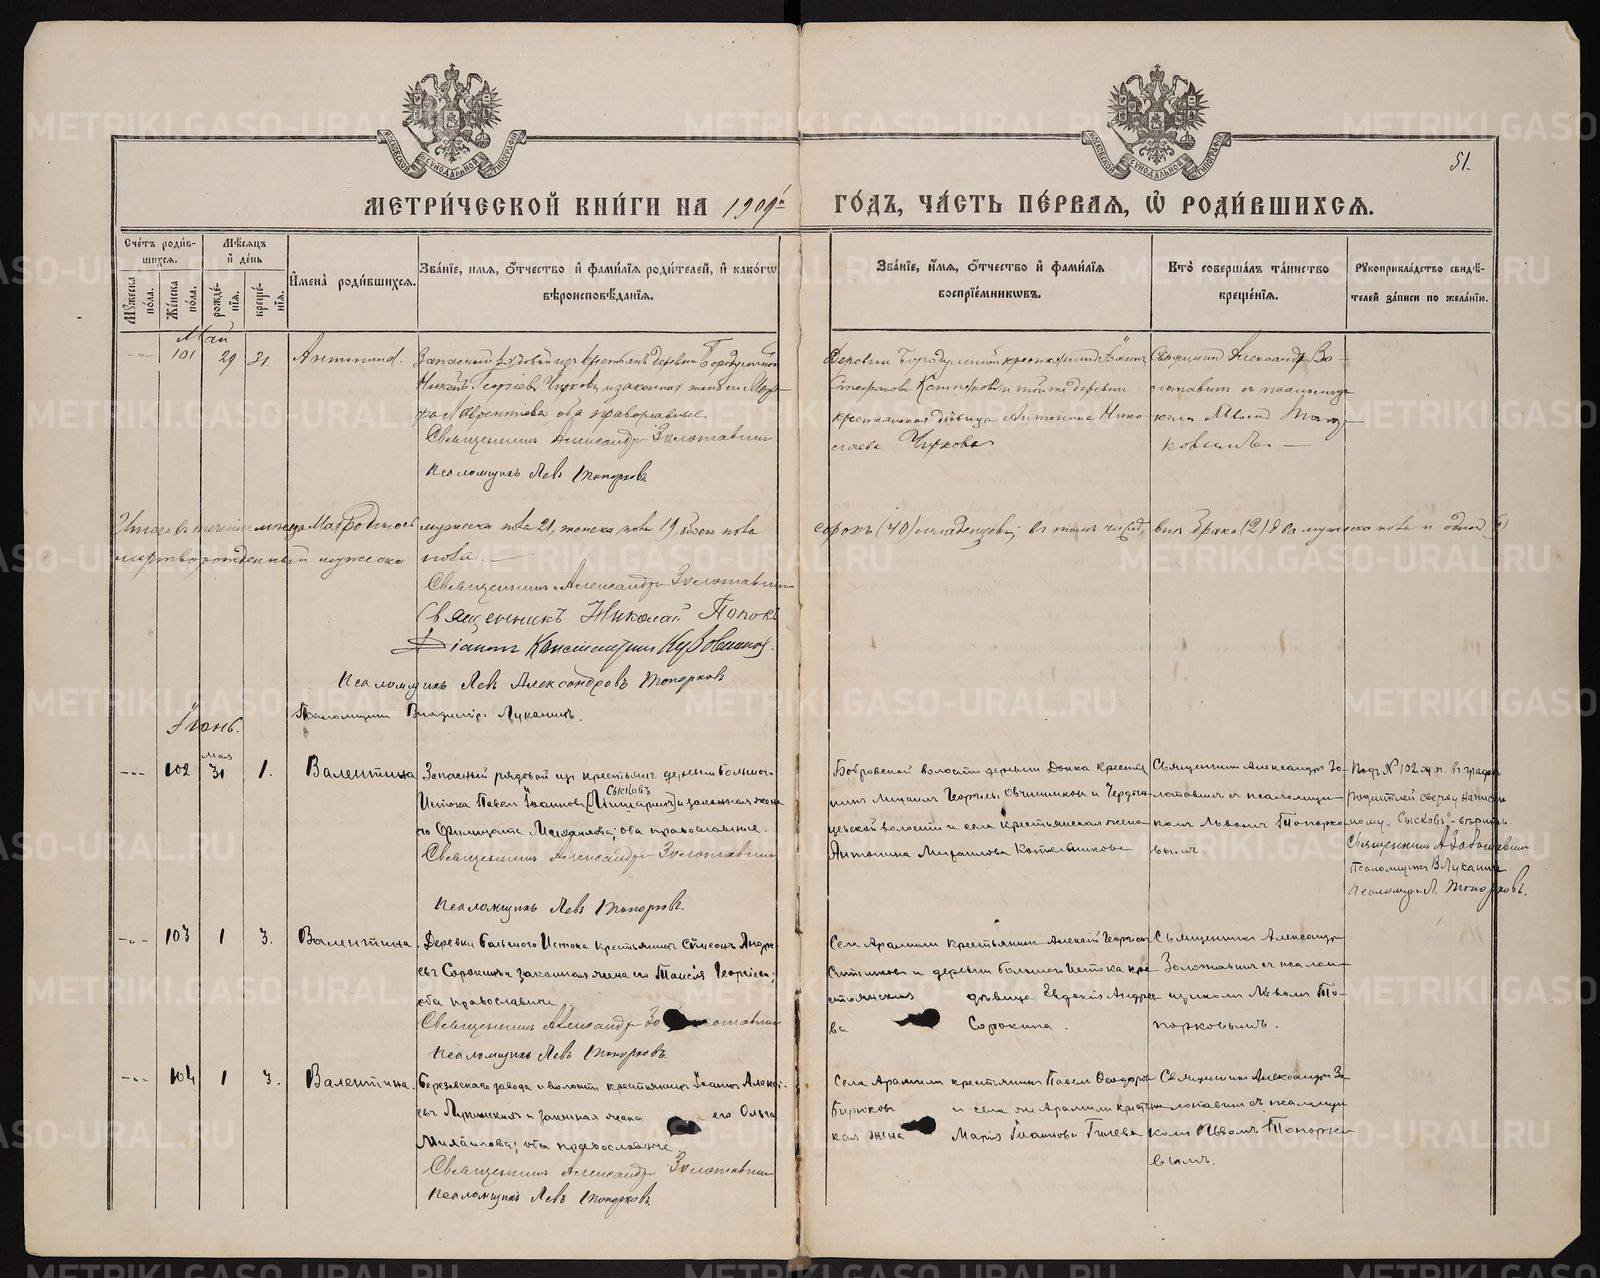 МЕТРИ́ЧЕСКОЙ КНИ́ГИ НА 1909й ГО́ДЪ, ЧА́СТЬ ПЕ́РВАЯ, Ѡ РОДИ́ВШИХСЯ.
51.
МОСКОВСКОЙ СѴНОДАЛЬНОЙ ТИПОГРАФІИ
МОСКОВСКОЙ СѴНОДАЛЬНОЙ ТИПОГРАФІИ
Сче́тъ роди́в-
шихся.
Мꙋ́жеска по́ла.
Же́нска по́ла.
Мѣ́сяцъ
и҆ де́нь
рожде́-
нїя.
креще́-
нїя.
И҆мена̀ роди́вшихся.
Зва́нїе, и҆́мя, ѻ҆́тчество и҆ фами́лїя роди́телей, и҆ како́гѡ
вѣроисповѣ́данїя.
Зва́нїе, и҆́мя, ѻ҆́тчество и҆ фами́лїя
воспрїе́мникѡвъ.
Кто̀ соверша́лъ та́инство
креще́нїя.
Рꙋкоприкла́дство свидѣ́-
телей за́писи по жела́нїю.
Май
101 29 31. Антонина.
Запасный рядовой изъ крестьянъ деревни Бородулиной
Георгіевъ Чирковъ и законная жена его
Лаврентіева, оба православные
Священникъ Александръ Золотавинъ
Псаломщикъ Левъ Топорковъ
Деревни Бородулиной крестьянинъ Іоаннъ
и той же деревни
крестьянская дѣвица Антонина Нико-
лаева Чиркова
Священникъ Александръ Зо-
лотавинъ съ псаломщи-
комъ Львомъ Топор-
ковымъ. —
Итого въ теченіи мѣсяца Мая родилось мужеска пола 21, женска пола 19, обоего пола сорокъ (40) младенцевъ; въ томъ числѣ, внѣ брака (2) два мужеска пола и одинъ (1)
мертворожденный мужеска пола. —
Священникъ Александръ Золотавинъ
Священникъ Николай Поповъ
Діаконъ Константинъ
Псаломщикъ Левъ Александровъ Топорковъ
Псаломщикъ Владиміръ Луканинъ.
Іюнь.
мая
102 31 1. Валентина
Запасный рядовой изъ крестьянъ деревни Большого
Сысковъ
Истока Павелъ Іоанновъ и законная жена
его Фелицата Михаилова; оба православные.
Священникъ Александръ Золотавинъ
Псаломщикъ Левъ Топорковъ.
Бобровской волости деревни крестья-
нинъ Михаилъ Георгіевъ Овчинниковъ и
волости и села крестьянская жена
Антонина Михаилова Котельникова
Священникъ Александръ Зо-
лотавинъ съ псаломщи-
комъ Львомъ Топорко-
вымъ.
Подъ № 102 ж.п. въ графѣ
родителей сверху написан-
ному „Сысковъ“ - вѣрить
Священникъ А Золотавинъ
Псаломщикъ В Луканинъ
Псаломщ. Л. Топорковъ.
103 1 3. Валентина.
Деревни Большого Истока крестьянинъ Симеонъ Андре-
евъ Сорокинъ и законная жена его Таисія Георгіева;
оба православные.
Священникъ Александръ Золотавинъ
Псаломщикъ Левъ Топорковъ.
Села Арамили крестьянинъ Алексій Георгіевъ
Ситниковъ и деревни Большого Истока кре-
стьянская дѣвица Евдокія Андрее-
ва Сорокина.
Священникъ Александръ
Золотавинъ съ псалом-
щикомъ Львомъ То-
порковымъ.
104 1 3. Валентина.
Березовскаго завода и волости крестьянинъ Іоаннъ Алексі-
евъ и законная жена его Ольга
Михаилова; оба православные
Священникъ Александръ Золотавинъ
Псаломщикъ Левъ Топорковъ.
Села Арамили крестьянинъ Павелъ Ѳеодоровъ
Бирюковъ и села же Арамили крестьянс-
кая жена Марія Іоаннова Гилева
Священникъ Александръ Зо-
лотавинъ съ псаломщи-
комъ Львомъ Топорко-
вымъ.
METRIKI.GASO-URAL.RU